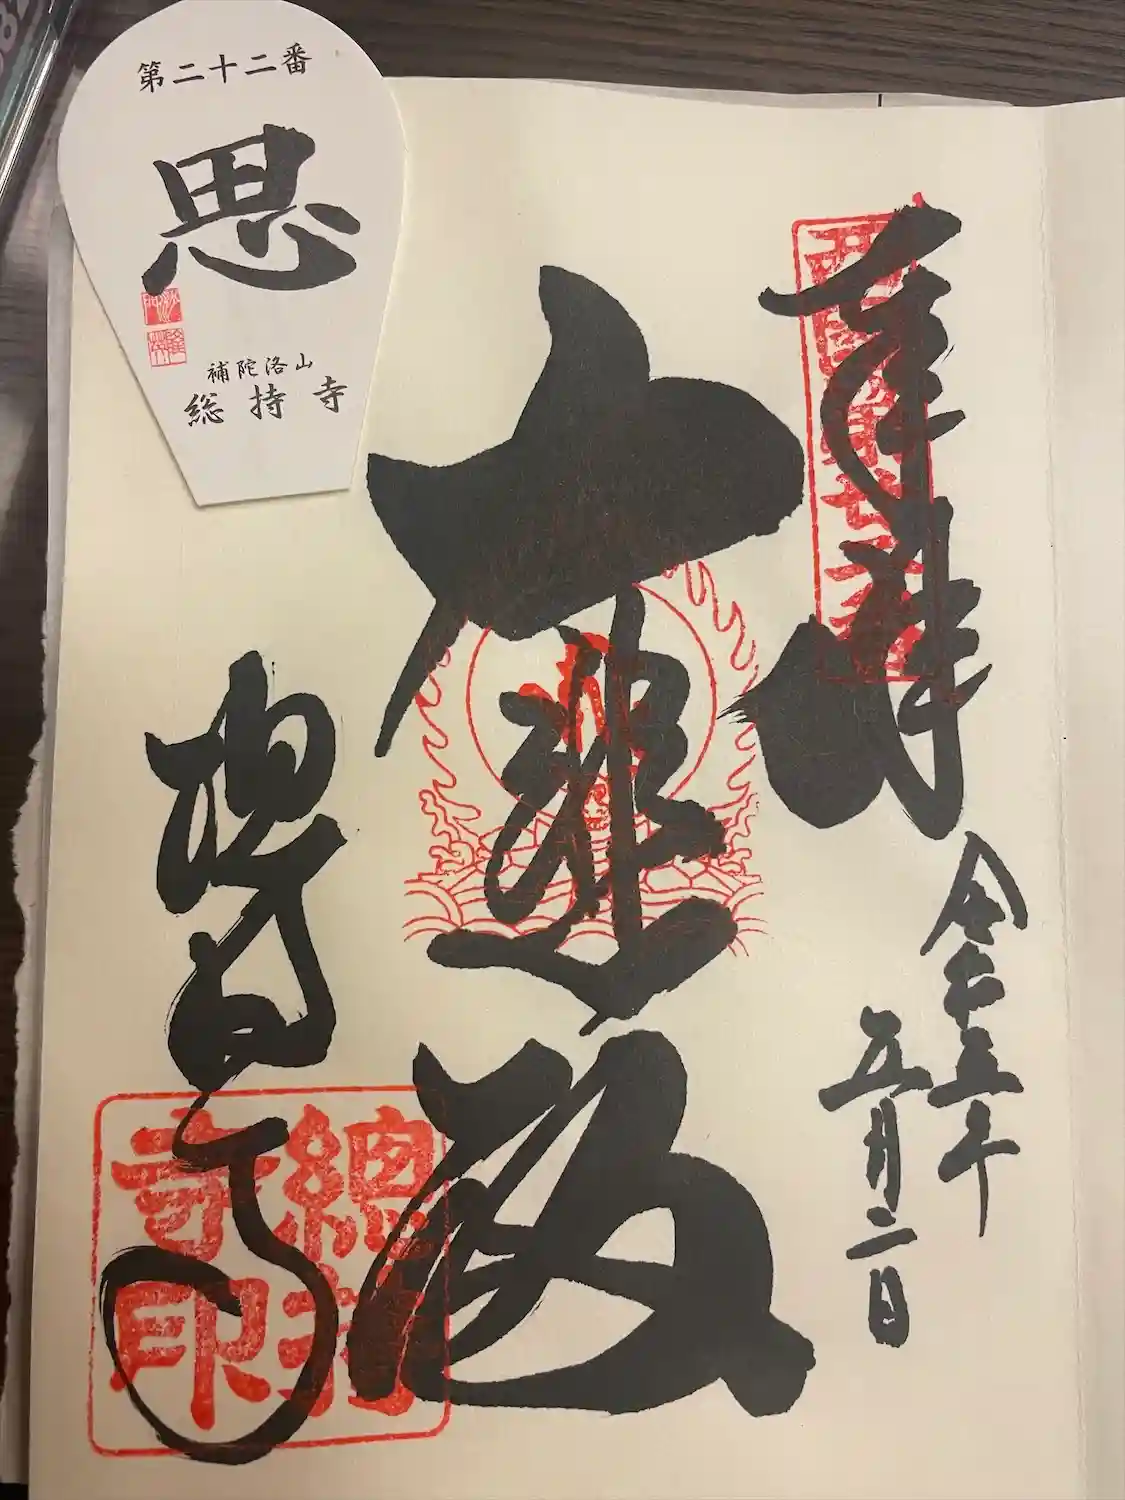 第二十二番
思
補陀洛山
総持寺
奉拝
西國第廿二番
令和五年
五月二日
大悲殿
摠持寺
總持寺印